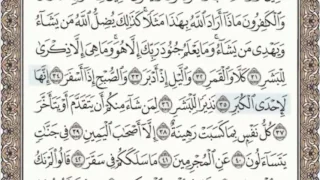 وَٱلْكَٰفِرُونَ مَاذَآ أَرَادَ ٱللَّهُ بِهَٰذَا مَثَلًا كَذَٰلِكَ يُضِلُّ ٱللَّهُ مَن يَشَآءُ
وَيَهْدِى مَن يَشَآءُ وَمَا يَعْلَمُ جُنُودَ رَبِّكَ إِلَّا هُوَ وَمَا هِىَ إِلَّا ذِكْرَىٰ
لِلْبَشَرِ ٣١ كَلَّا وَٱلْقَمَرِ ٣٢ وَٱلَّيْلِ إِذْ أَدْبَرَ ٣٣ وَٱلصُّبْحِ إِذَآ أَسْفَرَ ٣٤ إِنَّهَا
لَإِحْدَى ٱلْكُبَرِ ٣٥ نَذِيرًا لِّلْبَشَرِ ٣٦ لِمَن شَآءَ مِنكُمْ أَن يَتَقَدَّمَ أَوْ يَتَأَخَّرَ
٣٧ كُلُّ نَفْسٍۭ بِمَا كَسَبَتْ رَهِينَةٌ ٣٨ إِلَّآ أَصْحَٰبَ ٱلْيَمِينِ ٣٩ فِى جَنَّٰتٍ
يَتَسَآءَلُونَ ٤٠ عَنِ ٱلْمُجْرِمِينَ ٤١ مَا سَلَكَكُمْ فِى سَقَرَ ٤٢ قَالُوا۟ لَمْ نَكُ